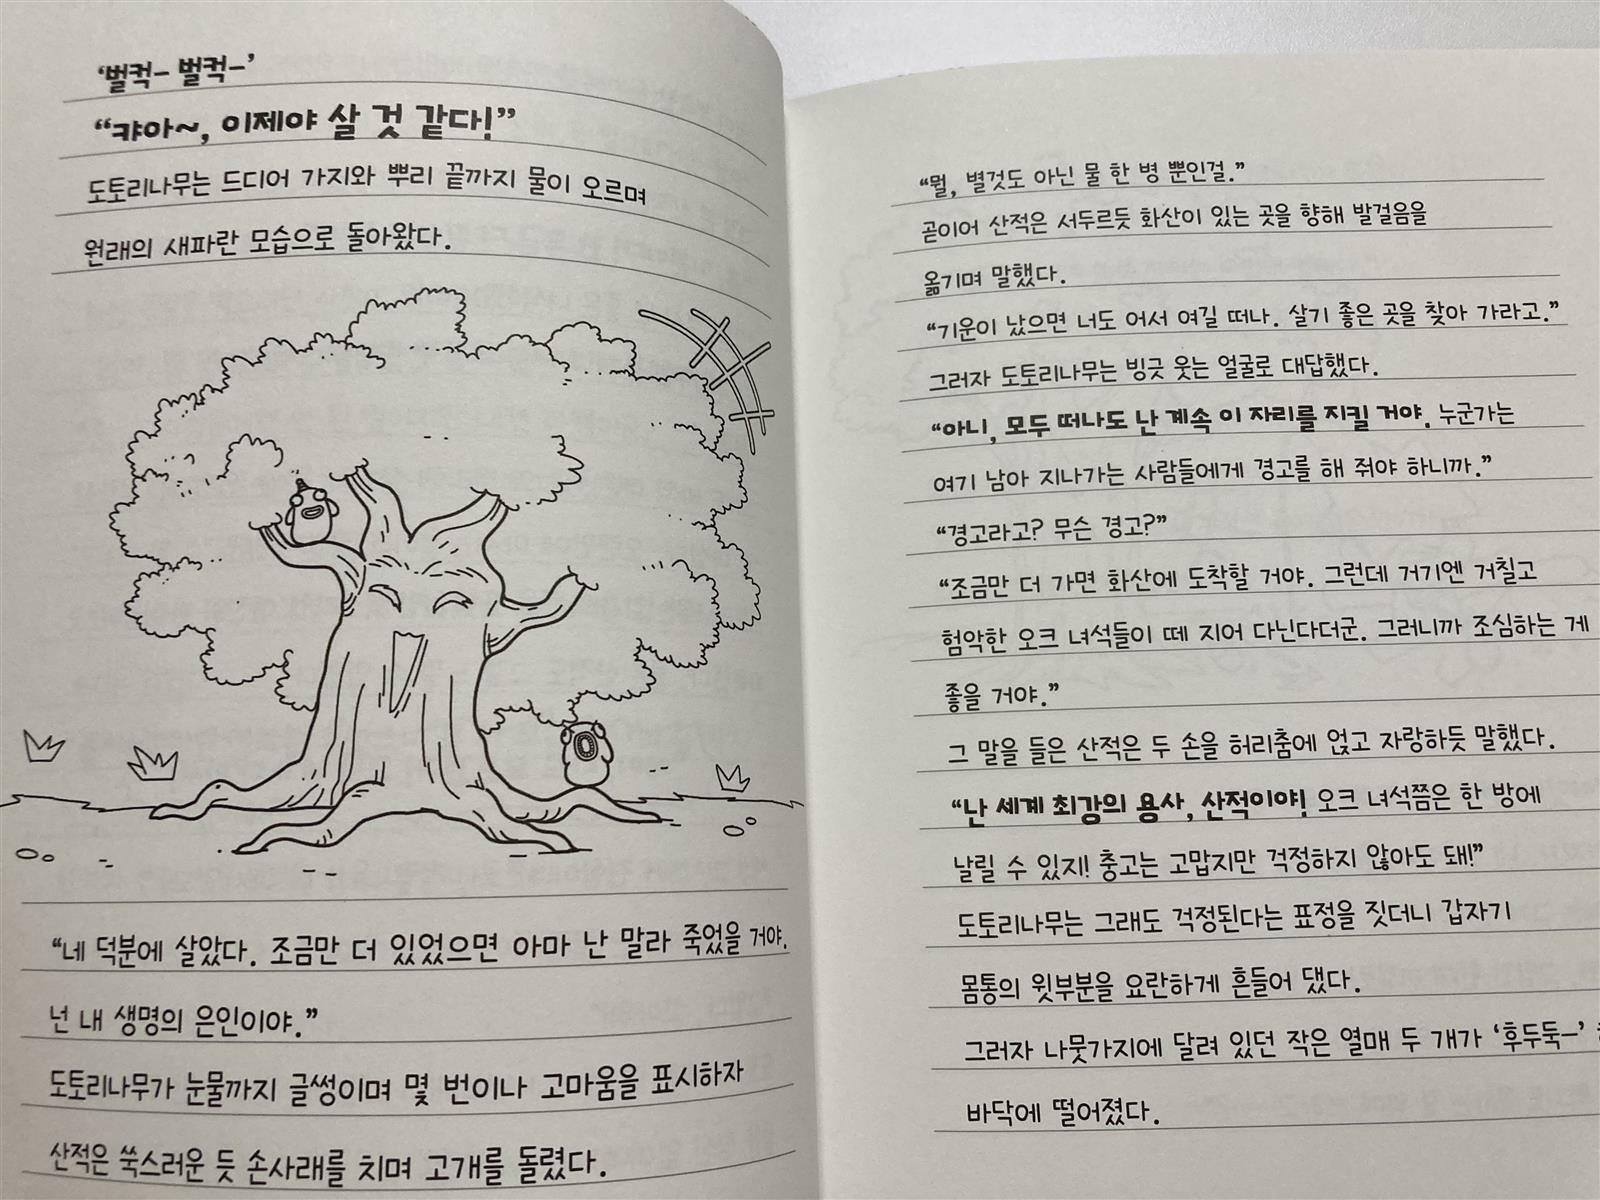 ‘벌컥- 벌컥-’
“캬아~, 이제야 살 것 같다!”
도토리나무는 드디어 가지와 뿌리 끝까지 물이 오르며
원래의 새파란 모습으로 돌아왔다.
“네 덕분에 살았다. 조금만 더 있었으면 아마 난 말라 죽었을 거야.
넌 내 생명의 은인이야.”
도토리나무가 눈물까지 글썽이며 몇 번이나 고마움을 표시하자
산적은 쑥스러운 듯 손사래를 치며 고개를 돌렸다.
“뭘, 별것도 아닌 물 한 병 뿐인걸.”
곧이어 산적은 서두르듯 화산이 있는 곳을 향해 발걸음을
옮기며 말했다.
“기운이 났으면 너도 어서 여길 떠나. 살기 좋은 곳을 찾아 가라고.”
그러자 도토리나무는 빙긋 웃는 얼굴로 대답했다.
“아니, 모두 떠나도 난 계속 이 자리를 지킬 거야. 누군가는
여기 남아 지나가는 사람들에게 경고를 해 줘야 하니까.”
“경고라고? 무슨 경고?”
“조금만 더 가면 화산에 도착할 거야. 그런데 거기엔 거칠고
험악한 오크 녀석들이 떼 지어 다닌다더군. 그러니까 조심하는 게
좋을 거야.”
그 말을 들은 산적은 두 손을 허리춤에 얹고 자랑하듯 말했다.
“난 세계 최강의 용사, 산적이야! 오크 녀석쯤은 한 방에
날릴 수 있지! 충고는 고맙지만 걱정하지 않아도 돼!”
도토리나무는 그래도 걱정된다는 표정을 짓더니 갑자기
몸통의 윗부분을 요란하게 흔들어 댔다.
그러자 나뭇가지에 달려 있던 작은 열매 두 개가 ‘후두둑-’
바닥에 떨어졌다.